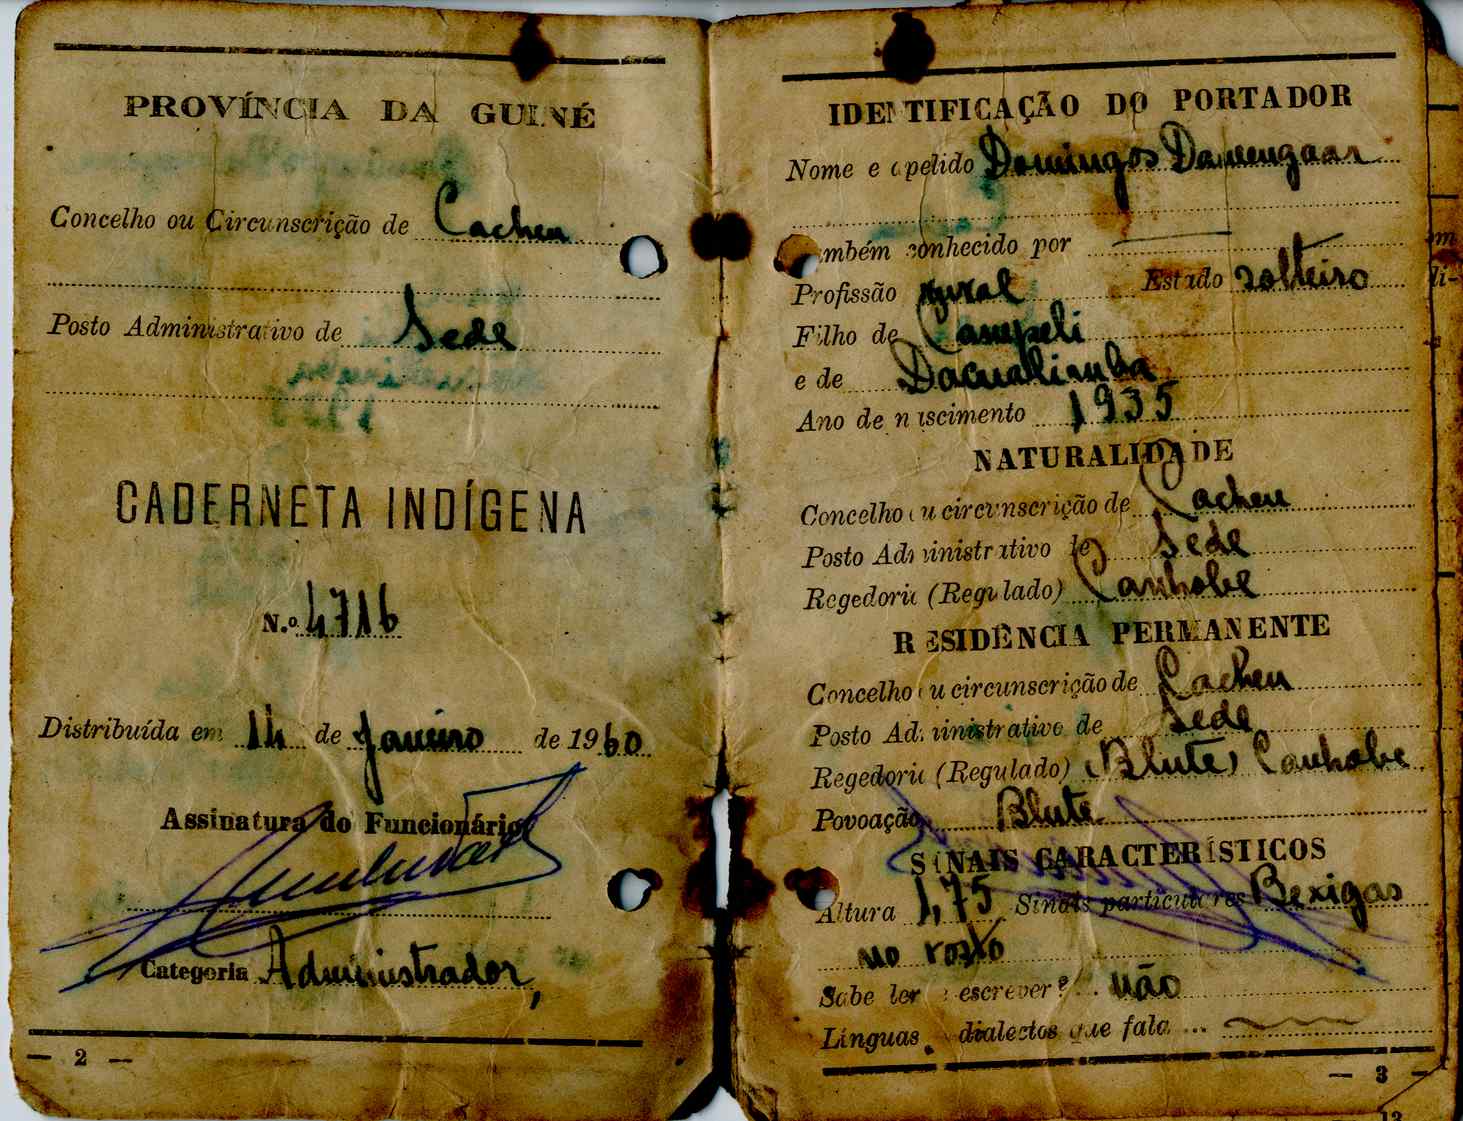 PROVÍNCIA DA GUINÉ
Concelho ou Circunscrição de Cacheu
Posto Administrativo de Sede
CADERNETA INDÍGENA
N.º 4716
Distribuída em 14 de Janeiro de 1960
Assinatura do Funcionário
Categoria Administrador,
— 2 —
IDENTIFICAÇÃO DO PORTADOR
Nome e apelido Domingos Damengaar
também conhecido por
Profissão rural Estado solteiro
Filho de Campeli
e de Dacualiamba
Ano de nascimento 1935
NATURALIDADE
Concelho ou circunscrição de Cacheu
Posto Administrativo de Sede
Regedoria (Regulado) Canhobe
RESIDÊNCIA PERMANENTE
Concelho ou circunscrição de Cacheu
Posto Administrativo de Sede
Regedoria (Regulado) (Blute) Canhobe
Povoação Blute
SINAIS CARACTERÍSTICOS
Altura 1,75 Sinais particulares Bexigas
no rosto
Sabe ler e escrever? não
Línguas e dialectos que fala ...
— 3 —